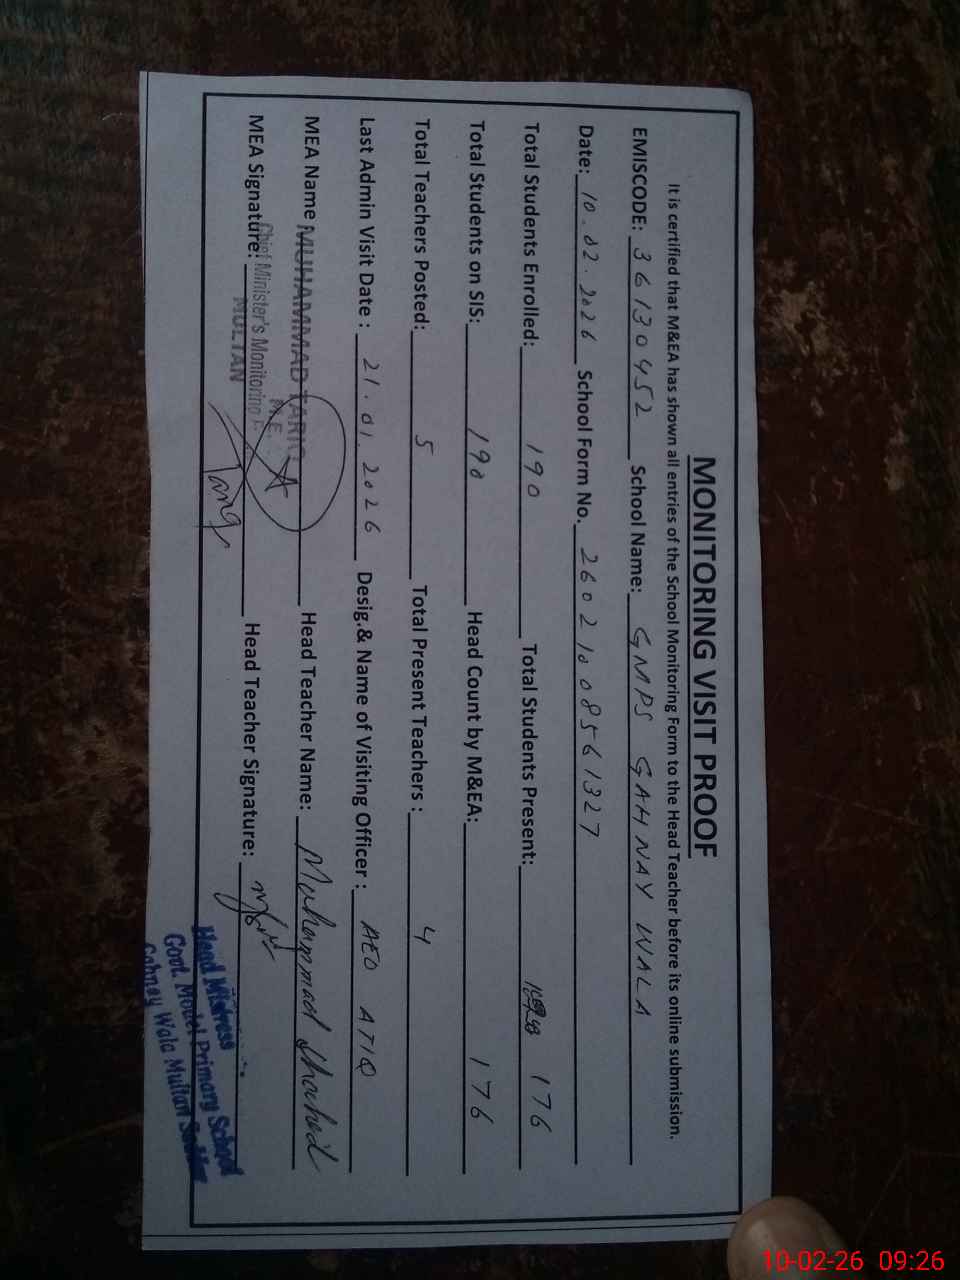 MONITORING VISIT PROOF
It is certified that M&EA has shown all entries of the School Monitoring Form to the Head Teacher before its online submission.
EMISCODE: 36130452 School Name: GMPS GAHNAY WALA
Date: 10.02.2026 School Form No. 26021008561327
Total Students Enrolled: 190 Total Students Present: 176
Total Students on SIS: 190 Head Count by M&EA: 176
Total Teachers Posted: 5 Total Present Teachers : 4
Last Admin Visit Date : 21.01.2026 Desig.& Name of Visiting Officer : AEO ATIQ
MEA Name MUHAMMAD TARIQ Head Teacher Name: Muhammad Shahid
M.E.
MEA Signature: Head Teacher Signature:
Chief Minister's Monitoring F
MULTAN
Head Mistress
Govt. Model Primary School
Gahney Wala Multan Saddar
10-02-26 09:26